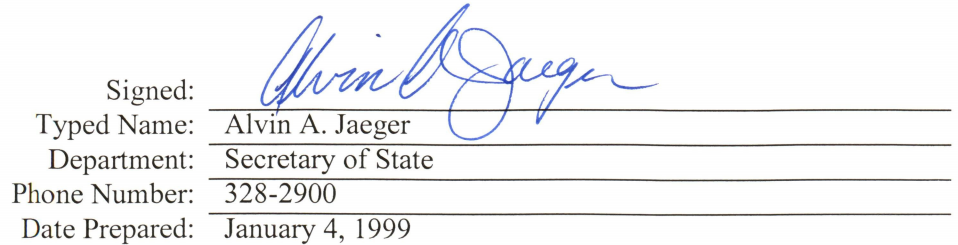 Signed: Alvin A Jaeger
Typed Name: Alvin A. Jaeger
Department: Secretary of State
Phone Number: 328-2900
Date Prepared: January 4, 1999